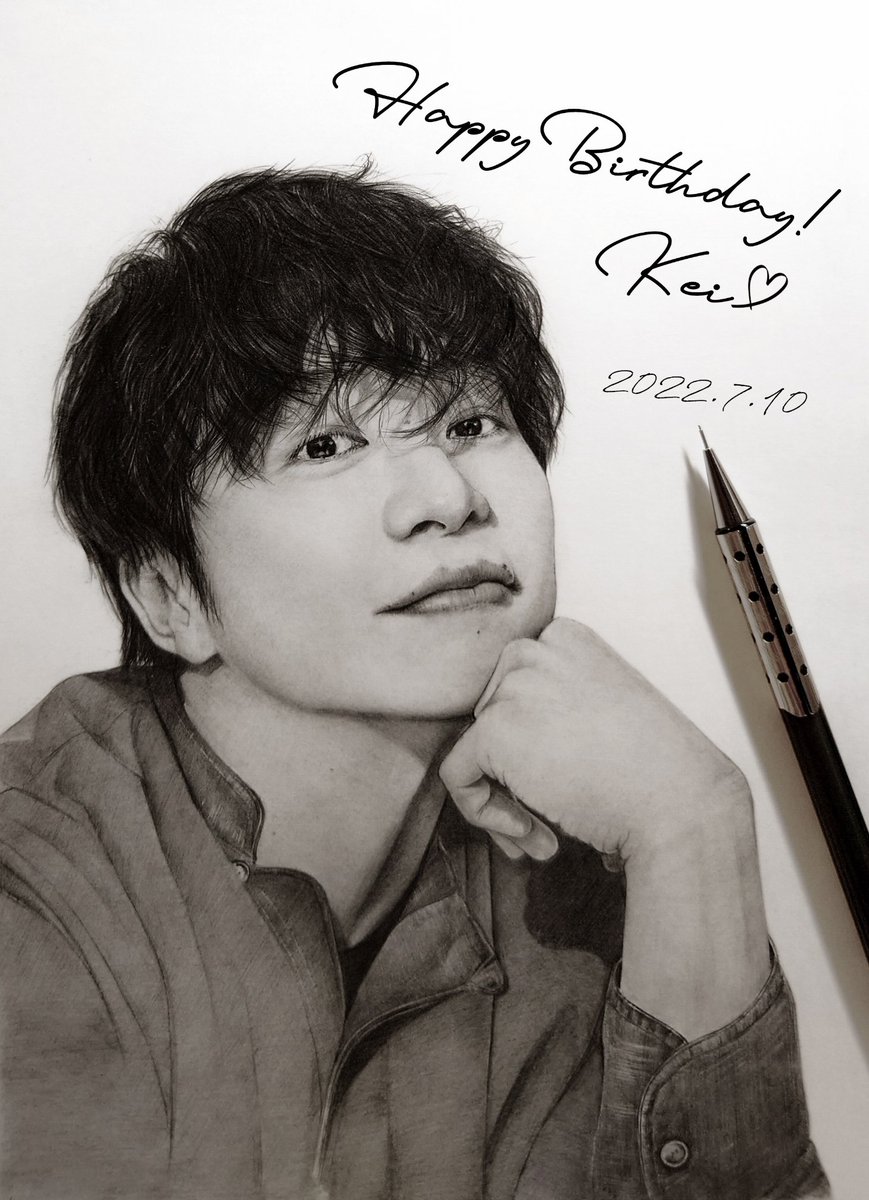 Happy Birthday!
Kei♡
2022.7.10